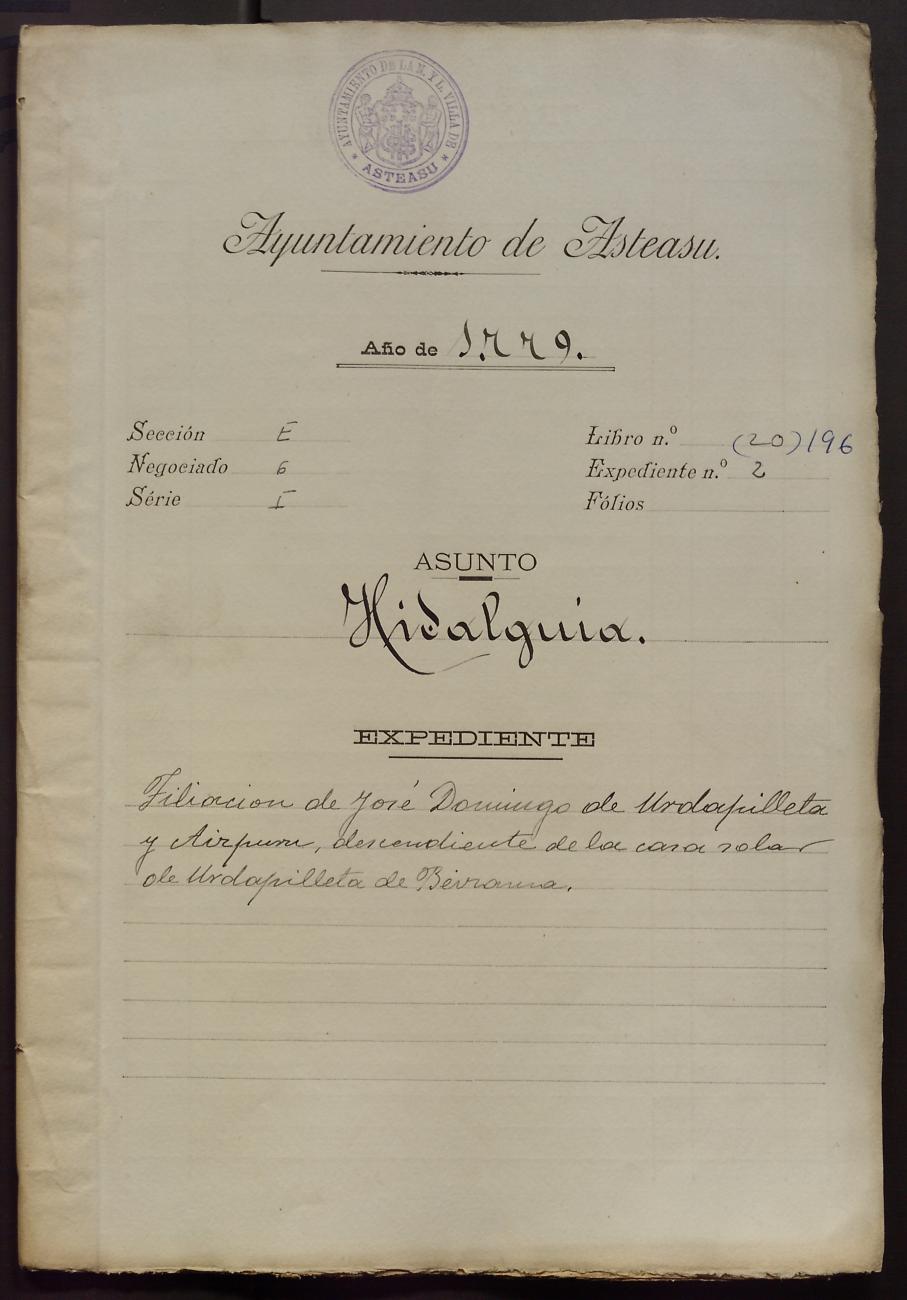 AYUNTAMIENTO DE LA N. Y L. VILLA DE
* ASTEASU *
Ayuntamiento de Asteasu.
Año de 1779.
Sección E
Negociado 6
Série I
Libro n.º (20) 196
Expediente n.º 2
Fólios
ASUNTO
Hidalguia.
EXPEDIENTE
Filiacion de José Domingo de Urdapilleta
y Aizpuru, descendiente de la casa solar
de Urdapilleta de Bérrama.